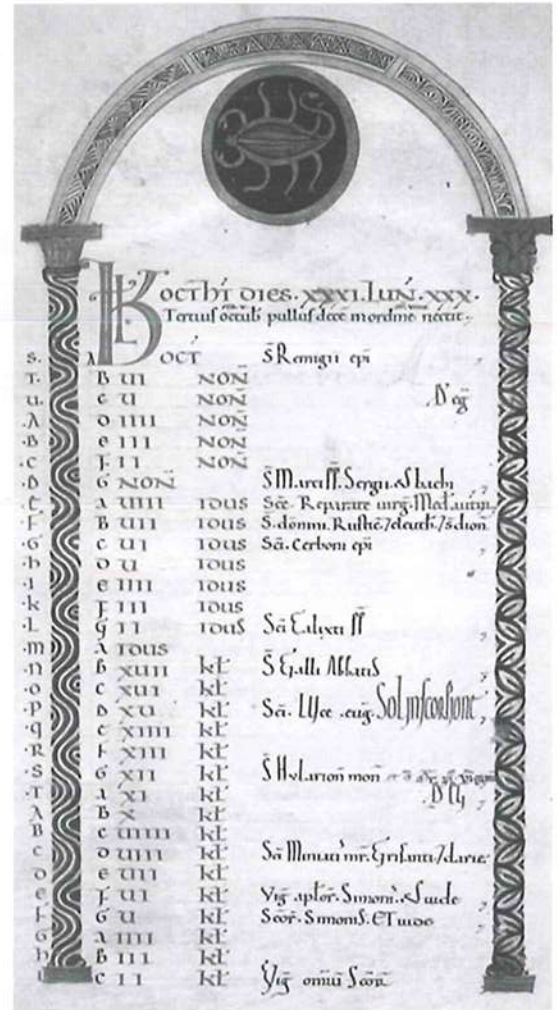 KL OCTBR DIES. XXXI. LUN. XXX.
Tertius octubris pullus decimo in ordine nectit.
S. A OCT S Remigii epi
T. B UI NON
U. C U NON D eg
.A D IIII NON
.B E III NON
.C F II NON
.D G NON S Marci pp. Sergii & Bachi
.E A UIII IDUS Sce Reparate uirg.
.F B UII IDUS S. domni
.G C UI IDUS Sci. Cerboni epi
.h D U IDUS
.I E IIII IDUS
.K F III IDUS
.L G II IDUS Sci Calixti pp
.M A IDUS
.N B XUII KL S Galli Abbatis
.O C XUI KL
.P D XU KL Sci. Luce eug. Sol in scorpione
.q E XIIII KL
.R F XIII KL
.S G XII KL S Hylarion mon
.T A XI KL
A B X KL
B C UIIII KL
C D UIII KL Sci Miniati mr. Grisanti / darie
D E UII KL
E F UI KL Vig aplor. Simonis & Iude
F G U KL Scor. Simonis. ET iude
G A IIII KL
h B III KL
I C II KL Vig omniu Scor